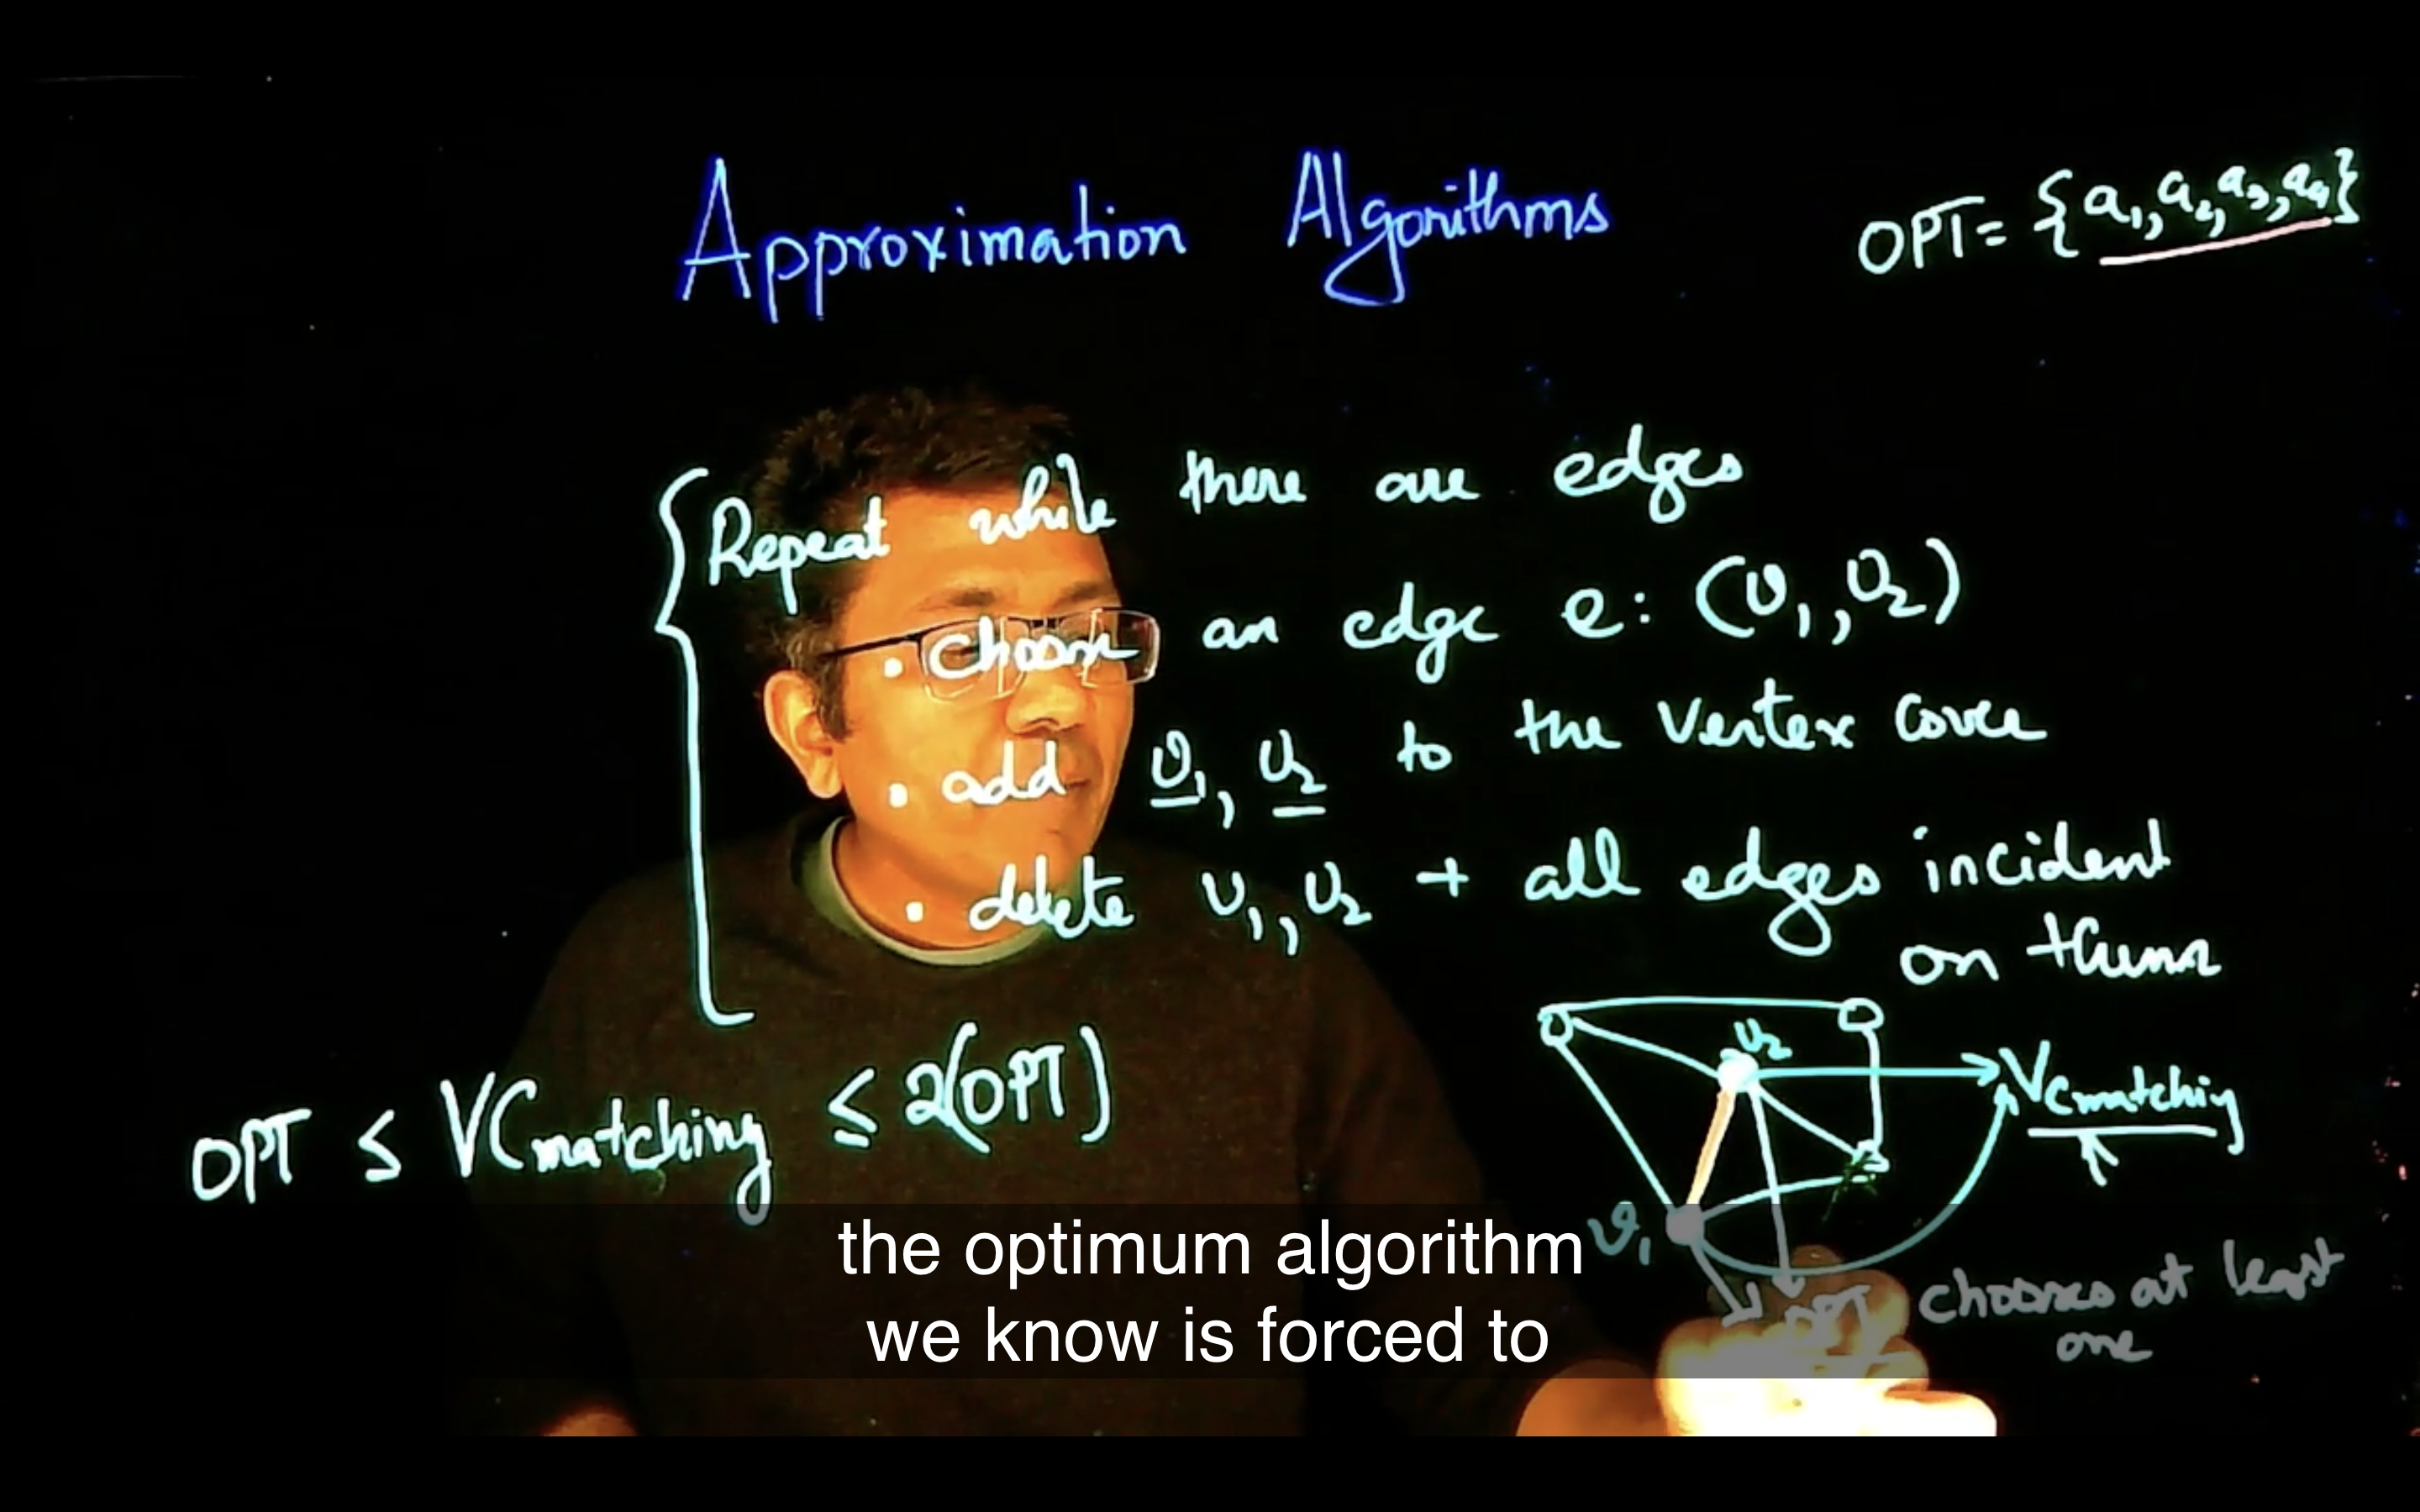 Approximation Algorithms
OPT = {a₁, a₂, a₃, a₄}
Repeat while there are edges
• choose an edge e: (v₁, v₂)
• add v₁, v₂ to the vertex cover
• delete v₁, v₂ + all edges incident
on them
OPT ≤ VCmatching ≤ 2(OPT)
v₂
VCmatching
v₁
OPT chooses at least
one
the optimum algorithm
we know is forced to